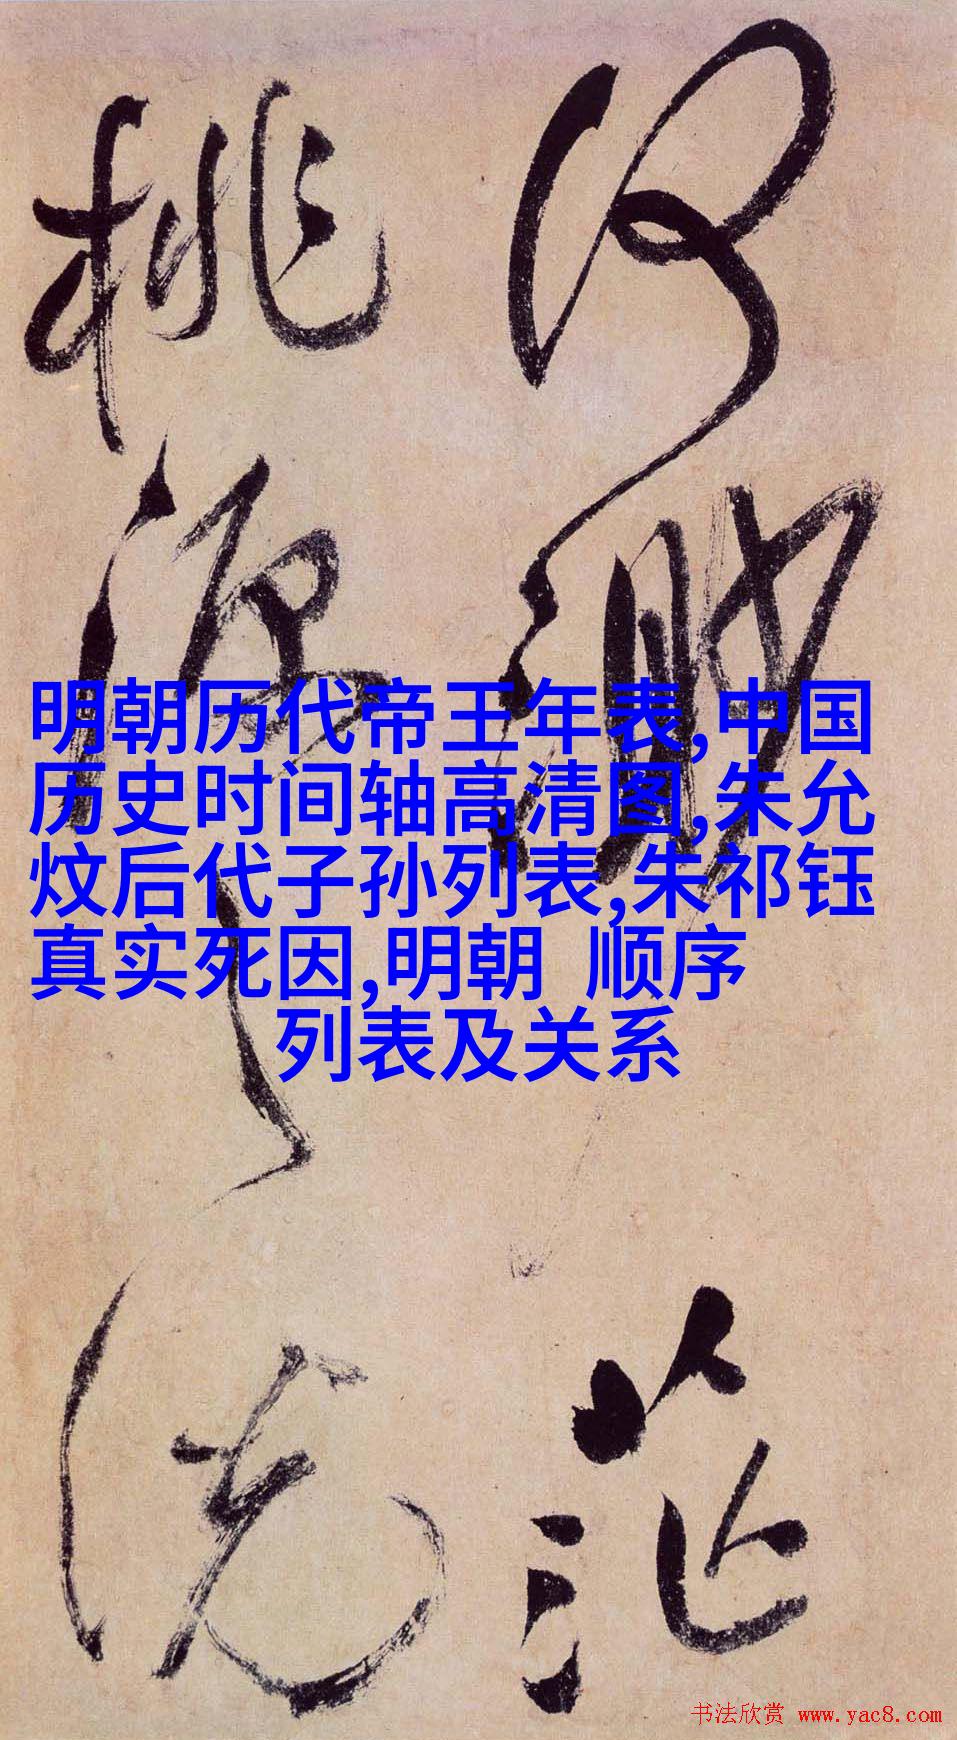 何渺茫
桃源之說
明朝历代帝王年表,中国
历史时间轴高清图,朱允
炆后代子孙列表,朱祁钰
真实死因,明朝 顺序
列表及关系
书法欣赏 www.yac8.com